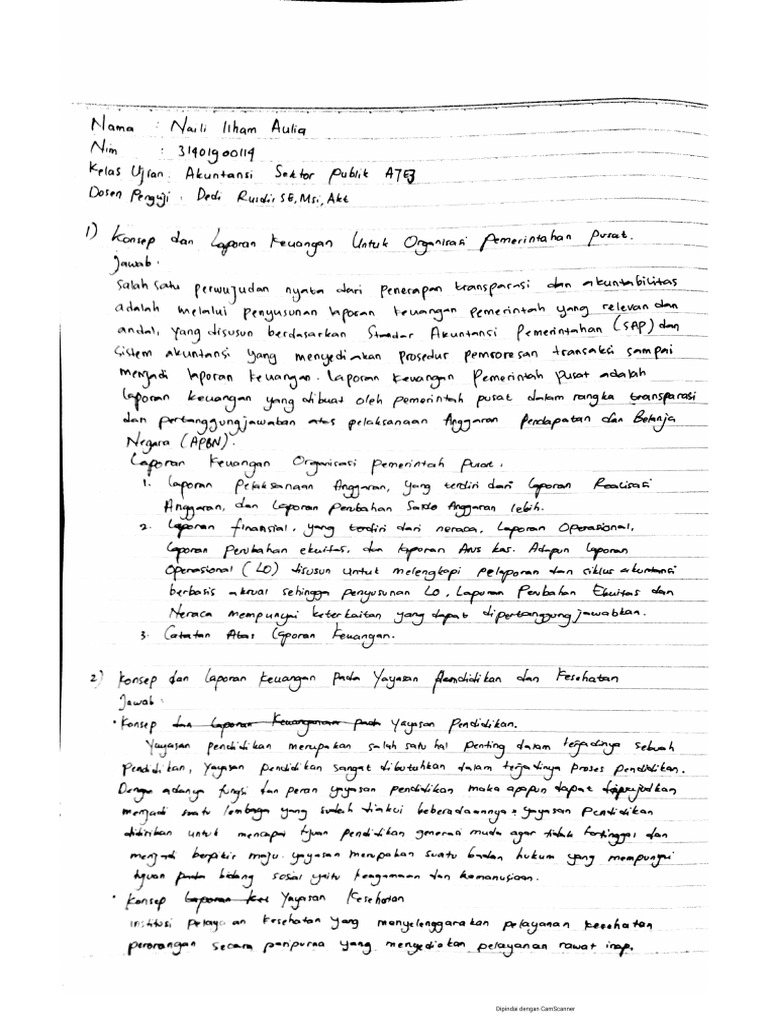 Nama : Naili Ilham Aulia
Nim : 31401900114
Kelas Ujian : Akuntansi Sektor Publik A7E3
Dosen Penguji : Dedi Rusdi SE, Msi, Akt
1) Konsep dan Laporan Keuangan Untuk Organisasi Pemerintahan pusat.
Jawab.
Salah satu perwujudan nyata dari penerapan transparasi dan akuntabilitas
adalah melalui penyusunan laporan keuangan pemerintah yang relevan dan
andal, yang disusun berdasarkan Standar Akuntansi Pemerintahan (SAP) dan
Sistem akuntansi yang menyediakan prosedur pemrosesan transaksi sampai
menjadi laporan keuangan. Laporan Keuangan Pemerintah pusat adalah
laporan keuangan yang dibuat oleh pemerintah pusat dalam rangka transparasi
dan pertanggungjawaban atas pelaksanaan Anggaran Pendapatan dan Belanja
Negara (APBN).
Laporan Keuangan Organisasi Pemerintah Pusat.
1. Laporan Pelaksanaan Anggaran, yang terdiri dari Laporan Realisasi
Anggaran, dan Laporan Perubahan Saldo Anggaran lebih.
2. Laporan finansial, yang terdiri dari neraca, Laporan Operasional,
Laporan Perubahan ekuitas, dan laporan Arus kas. Adapun laporan
Operasional (LO) disusun untuk melengkapi pelaporan dan siklus akuntansi
berbasis akrual sehingga penyusunan LO, Laporan Perubahan Ekuitas dan
Neraca mempunyai keterkaitan yang dapat dipertanggungjawabkan.
3. Catatan Atas Laporan Keuangan.
2) Konsep dan Laporan Keuangan pada Yayasan Pendidikan dan Kesehatan
Jawab :
• Konsep dan Laporan Keuangan pada Yayasan Pendidikan.
Yayasan pendidikan merupakan salah satu hal penting dalam terjadinya sebuah
Pendidikan, Yayasan pendidikan sangat dibutuhkan dalam terjadinya proses pendidikan.
Dengan adanya fungsi dan peran yayasan pendidikan maka apapun dapat diwujudkan
menjadi suatu lembaga yang sudah diakui keberadaannya. yayasan Pendidikan
didirikan untuk mencapai tujuan pendidikan generasi muda agar tidak tertinggal dan
menjadi berpikir maju. yayasan merupakan suatu badan hukum yang mempunyai
tujuan pada bidang sosial yaitu keagamaan dan kemanusiaan.
• Konsep Laporan Yayasan Kesehatan
institusi pelayanan kesehatan yang menyelenggarakan pelayanan kesehatan
perorangan secara paripurna yang menyediakan pelayanan rawat inap,
Dipindai dengan CamScanner